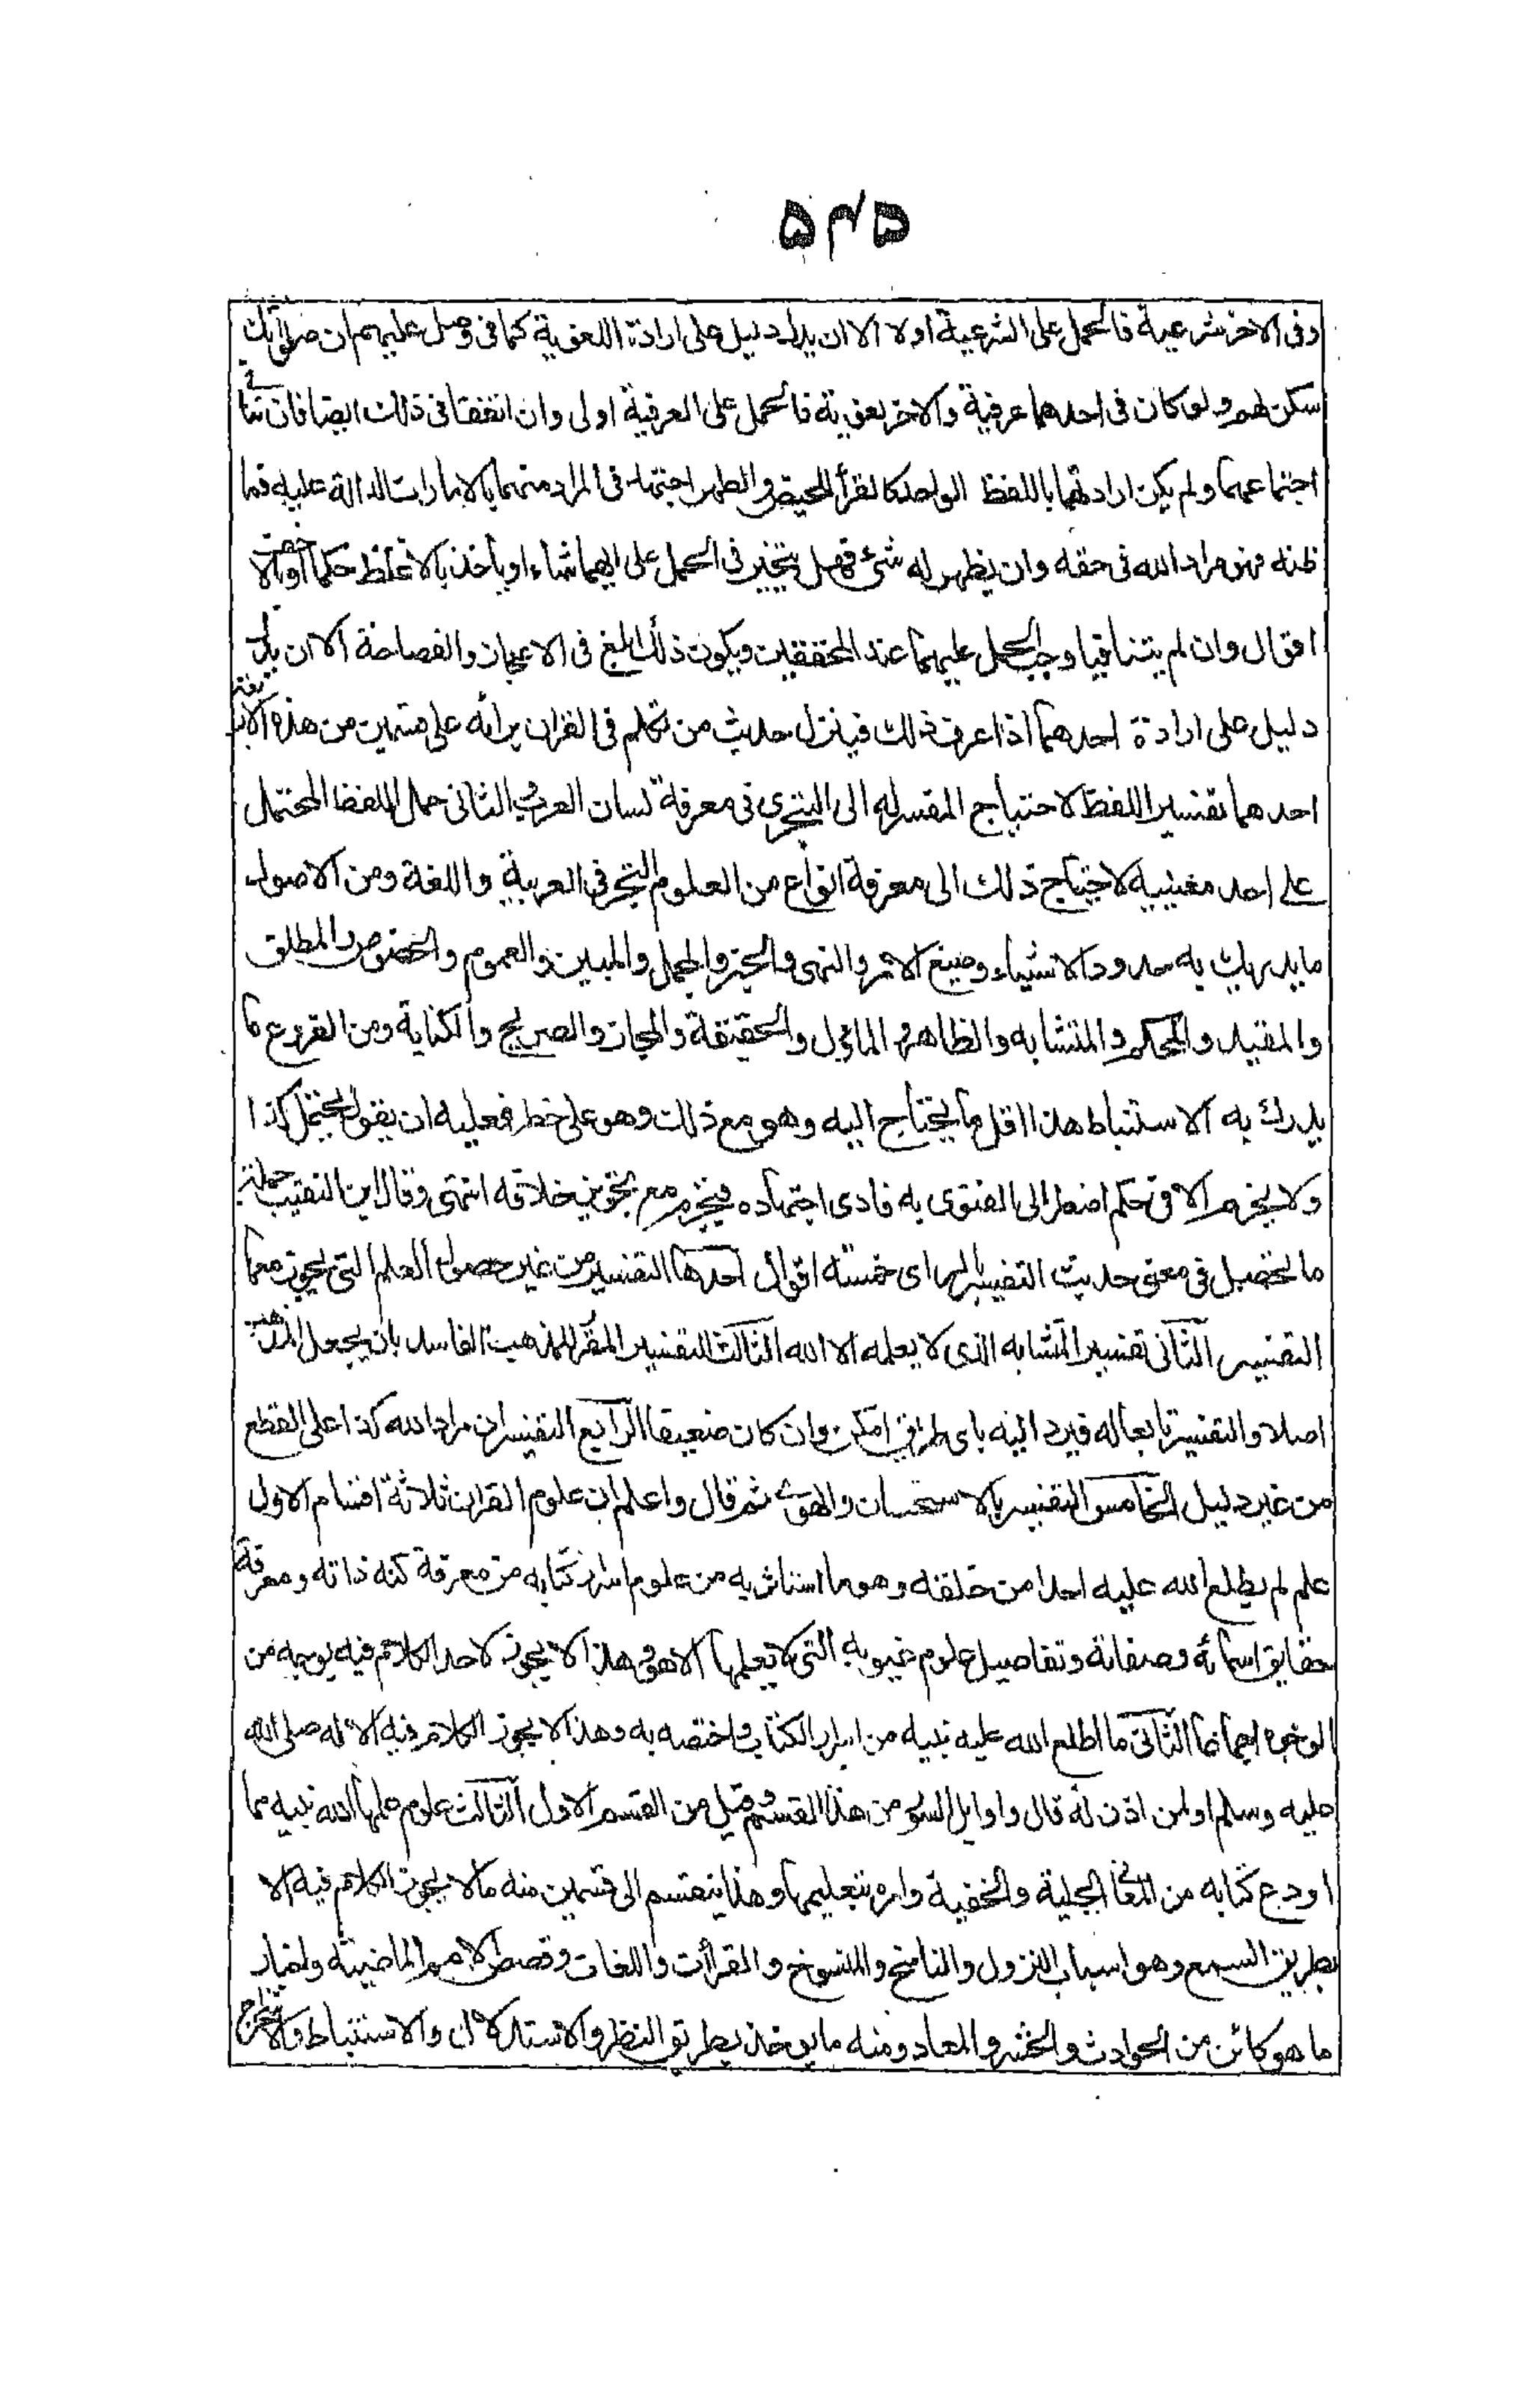 ۵۴۵
وفى الاخر شرعية فالحمل على الشرعية اولا الا ان يدل دليل على ارادة اللغوية كما فى وصل عليهم ان صلوٰتك
سكن لهم ولو كان فى احدهما عرفية والاخر لغوية فالحمل على العرفية اولى وان اتفقتا فى ذلك ايضا فان تنافى
اجتماعهما ولم يكن ارادتهما باللفظ الواحد كالقرأ للحيض والطهر اجتهد فى المراد منهما بالامارات الدالة عليه فما
ظنه فهو مراد الله فى حقه وان يظهر له شئ فهل يتخير فى الحمل على ايهما شاء او ياخذ بالاغلظ حكما او بالاخف
اقوال وان لم يتنافيا وجب الحمل عليهما عند المحققين ويكون ذلك ابلغ فى الاعجاز والفصاحة الا ان يدل
دليل على ارادة احدهما اذا عرف ذلك فينزل حديث من تكلم فى القران برائه على قسمين من هذه الاربعة
احدهما تفسير اللفظ لاحتياج المفسر له الى التبحر فى معرفة لسان العرب والثانى حمل اللفظ المحتمل
على احد معنييه لاحتياج ذلك الى معرفة انواع من العلوم التبحر فى العربية واللغة ومن الاصول
ما يدرك به حدود الاشياء وصيغ الامر والنهى والخبر والمجمل والمبين والعموم والخصوص والمطلق
والمقيد والمحكم والمتشابه والظاهر والماؤل والحقيقة والمجاز والصريح والكناية ومن الفروع ما
يدرك به الاستنباط هذا اقل ما يحتاج اليه وهو مع ذلك وهو على خطر فعليه ان يقول يحتمل كذا
ولا يجزم الا فى حكم اضطر الى الفتوى به فادى اجتهاده فيجزم مع تجويز خلافه انتهى وقال ابن النقيب جملة
ما تحصل فى معنى حديث التفسير بالراى خمسته اقوال احدها التفسير من غير حصول العلم التى يجوز معها
التفسير الثانى تفسير المتشابه الذى لا يعلمه الا الله الثالث التفسير المقرر للمذهب الفاسد بان يجعل المذهب
اصلا والتفسير تابعا له فيرد اليه باى طريق امكن وان كان ضعيفا الرابع التفسير ان مراد الله كذا على القطع
من غير دليل الخامس التفسير بالاستحسان والهوى ثم قال واعلم ان علوم القران ثلاثة اقسام الاول
علم لم يطلع الله عليه احدا من خلقه وهو ما استاثر به من علوم اسرار كتابه من معرفة كنه ذاته ومعرفة
حقايق اسمائه وصفاته وتفاصيل علوم غيوبه التى لا يعلمها الا هو وهذا لا يجوز لاحد الكلام فيه بوجه من
الوجوه اجماعا الثانى ما اطلع الله عليه نبيه من اسرار الكتاب واختصه به وهذا لا يجوز الكلام فيه الا له صلى الله
عليه وسلم او لمن اذن له قال واوايل السور من هذا القسم وقيل من القسم الاول الثالث علوم علمها الله نبيه مما
اودع كتابه من المعانى الجلية والخفية وامره بتعليمها وهذا ينقسم الى قسمين منه ما لا يجوز الكلام فيه الا
بطريق السمع وهو اسباب النزول والناسخ والمنسوخ والقرأت واللغات وقصص الامم الماضية واخبار
ما هو كائن من الحوادث والحشر والمعاد ومنه ما يوخذ بطريق النظر والاستدلال والاستنباط والاستخراج